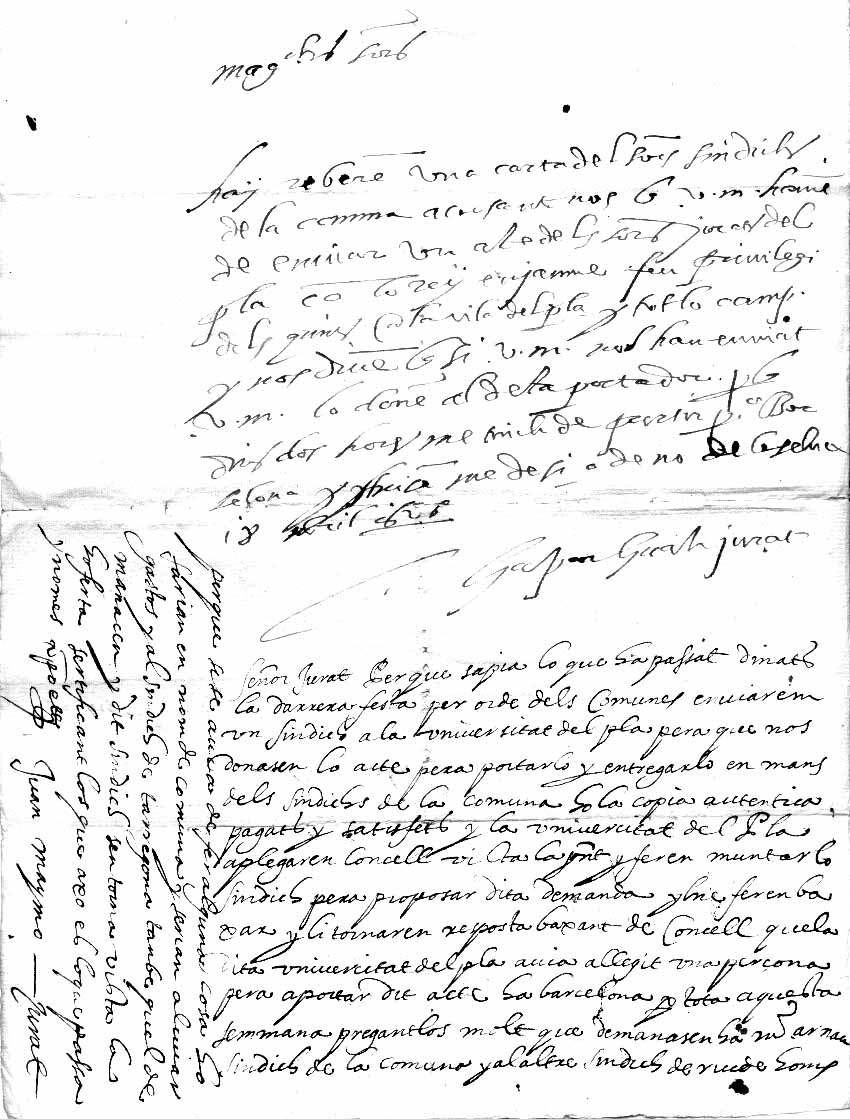 mag.chs sors
haÿ reberē una carta dels sōrs sindichs
de la comuna acusant nos q̄ v.m. havē
de enviar un acte dels sōrs jurats del
pla co lo reÿ en jaume feu privilegi
dels quins a la vila del pla y tot lo camp.
y nos diuē q̄ si v.m. nos hau enviat
v.m. lo donē al dela portador. p q̄
dins dos hores me tinch de partir p.a Bar
selona y me de si o de no de la selva
18 abril
Gaspar jurat
Señor Jurat Perque sapia lo que ha pasiat dinats
la darrera festa per orde dels Comunes enviarem
un sindich a la universitat del pla pera que nos
donasen lo acte pera portarlo y entregarlo en mans
dels sindichs de la comuna ho la copia autentica
pagats y satisfets y la univercitat del Pla
aplegaren Concell vista la pnt y feren muntar lo
sindich pera proposar dita demanda y feren ba
xar y li tornaren resposta baxant de Concell que la
dita univercitat del pla avia allegit una perçona
pera aportar dit acte ha barcelona p tota aquesta
semmana pregantlos molt que demanasen ha mr arnau
sindich de la comuna y al altre sindich de riudehoms
perque se se avia de fer alguna cosa ho
farian en nom de comuna y serian aliviar
gastos y al sindich de tarregona tambe que l de
manasen y dit sindich sen torna vista la
soferta sertificantlos que axo es lo que passa
y nomes
Juan maymo Jurat